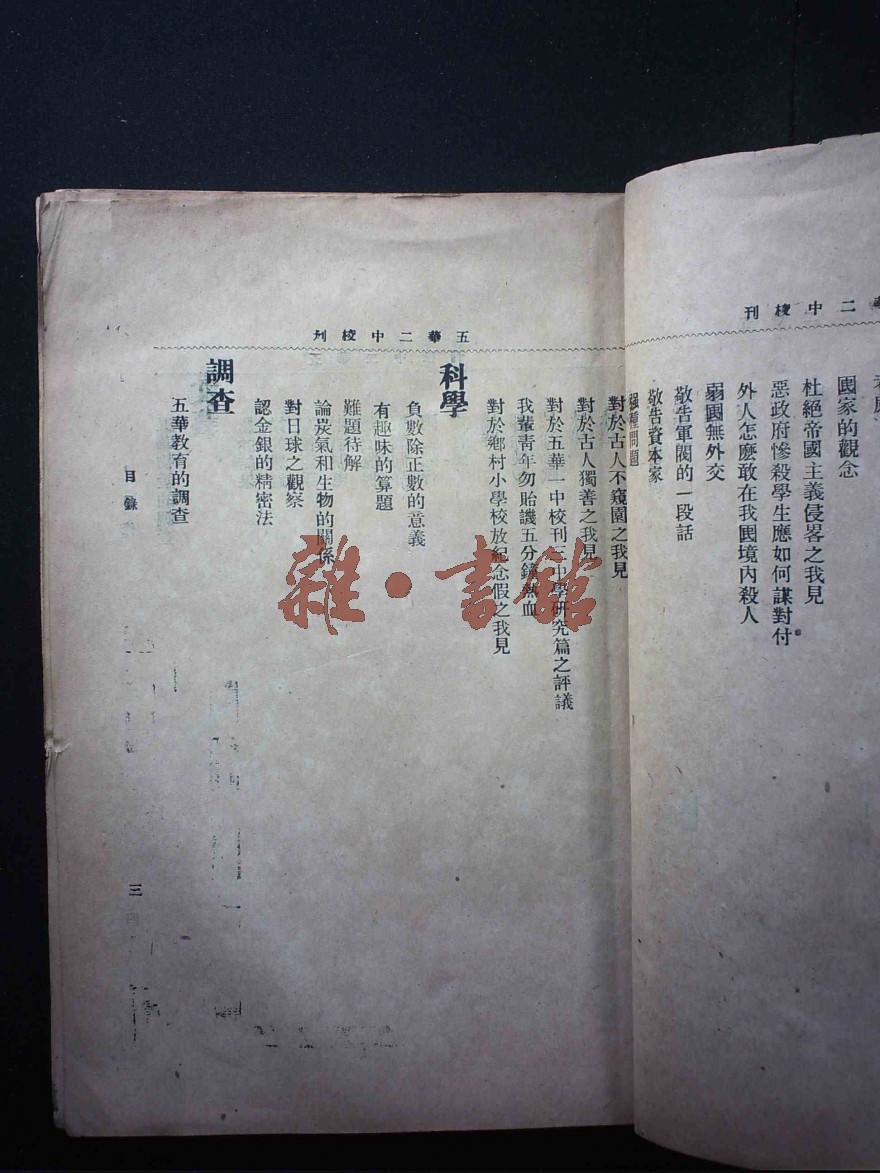 華二中校刊
國家的觀念
杜絕帝國主義侵畧之我見
惡政府慘殺學生應如何謀對付
外人怎麽敢在我國境內殺人
弱國無外交
敬告軍閥的一段話
敬告資本家
强種問題
五華二中校刋
對於古人不窺園之我見
對於古人獨善之我見
對於五華一中校刊三中學研究篇之評議
我輩青年勿貽譏五分鐘熱血
對於鄉村小學校放紀念假之我見
科學
負數除正數的意義
有趣味的算題
難題待解
論炭氣和生物的關係
對日球之觀察
認金銀的精密法
調查
五華教育的調查
目錄
三
雜·書館